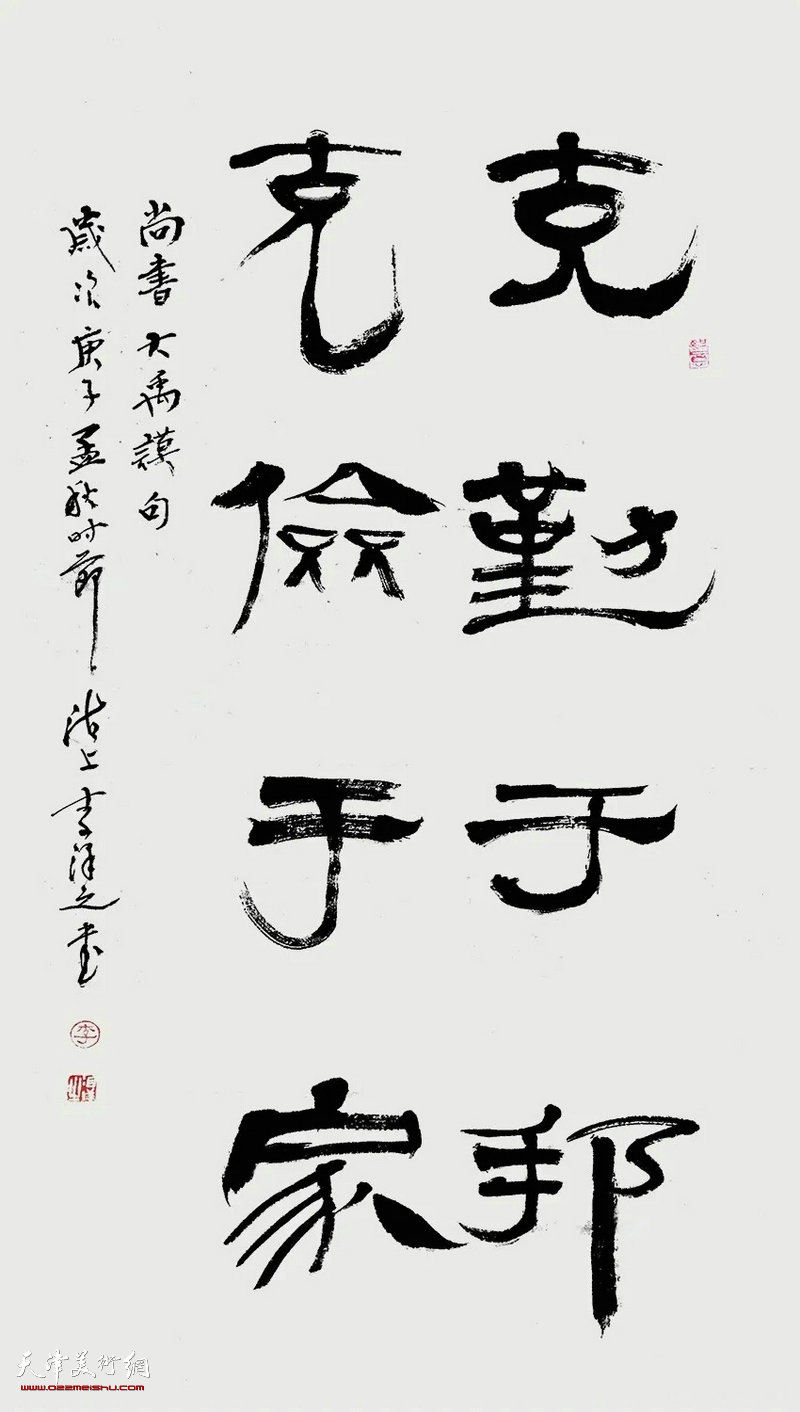 克勤于邦
克儉于家
尚書大禹謨句
歲次庚子孟秋时節沽上李澤之書
李
天津美術網
www.022meishu.com